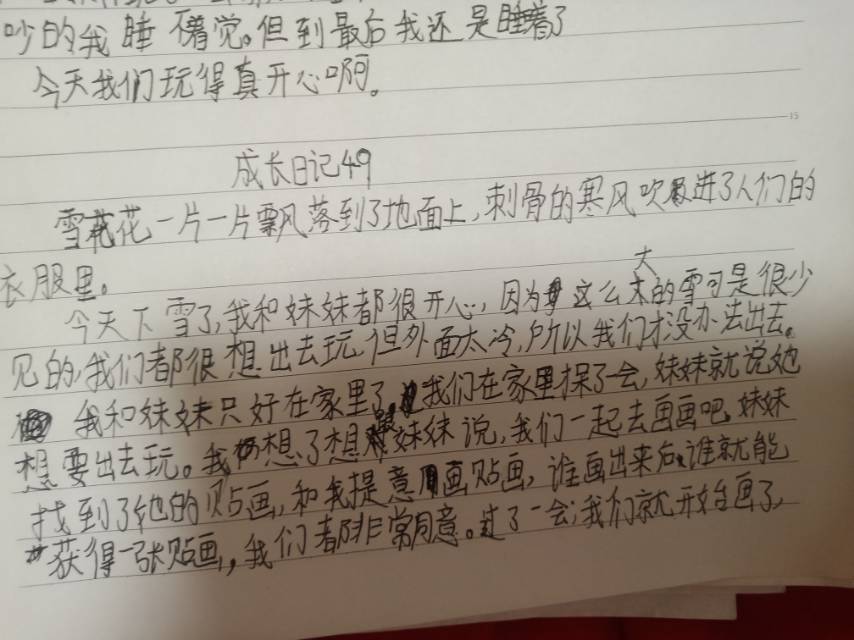 吵的我睡不着觉。但到最后我还是睡着了
今天我们玩得真开心啊。
15
成长日记49
雪花一片一片飘落到了地面上,刺骨的寒风吹进了人们的
衣服里。
今天下雪了,我和妹妹都很开心,因为这么大的雪可是很少
见的,我们都很想出去玩,但外面太冷,所以我们才没办法出去。
我和妹妹只好在家里了,我们在家里探了一会,妹妹就说她
想要出去玩。我想了想妹妹说,我们一起去画画吧。妹妹
找到了她的贴画,和我提意画贴画,谁画出来后,谁就能
获得一张贴画,我们都非常同意。过了一会,我们就开始画了,